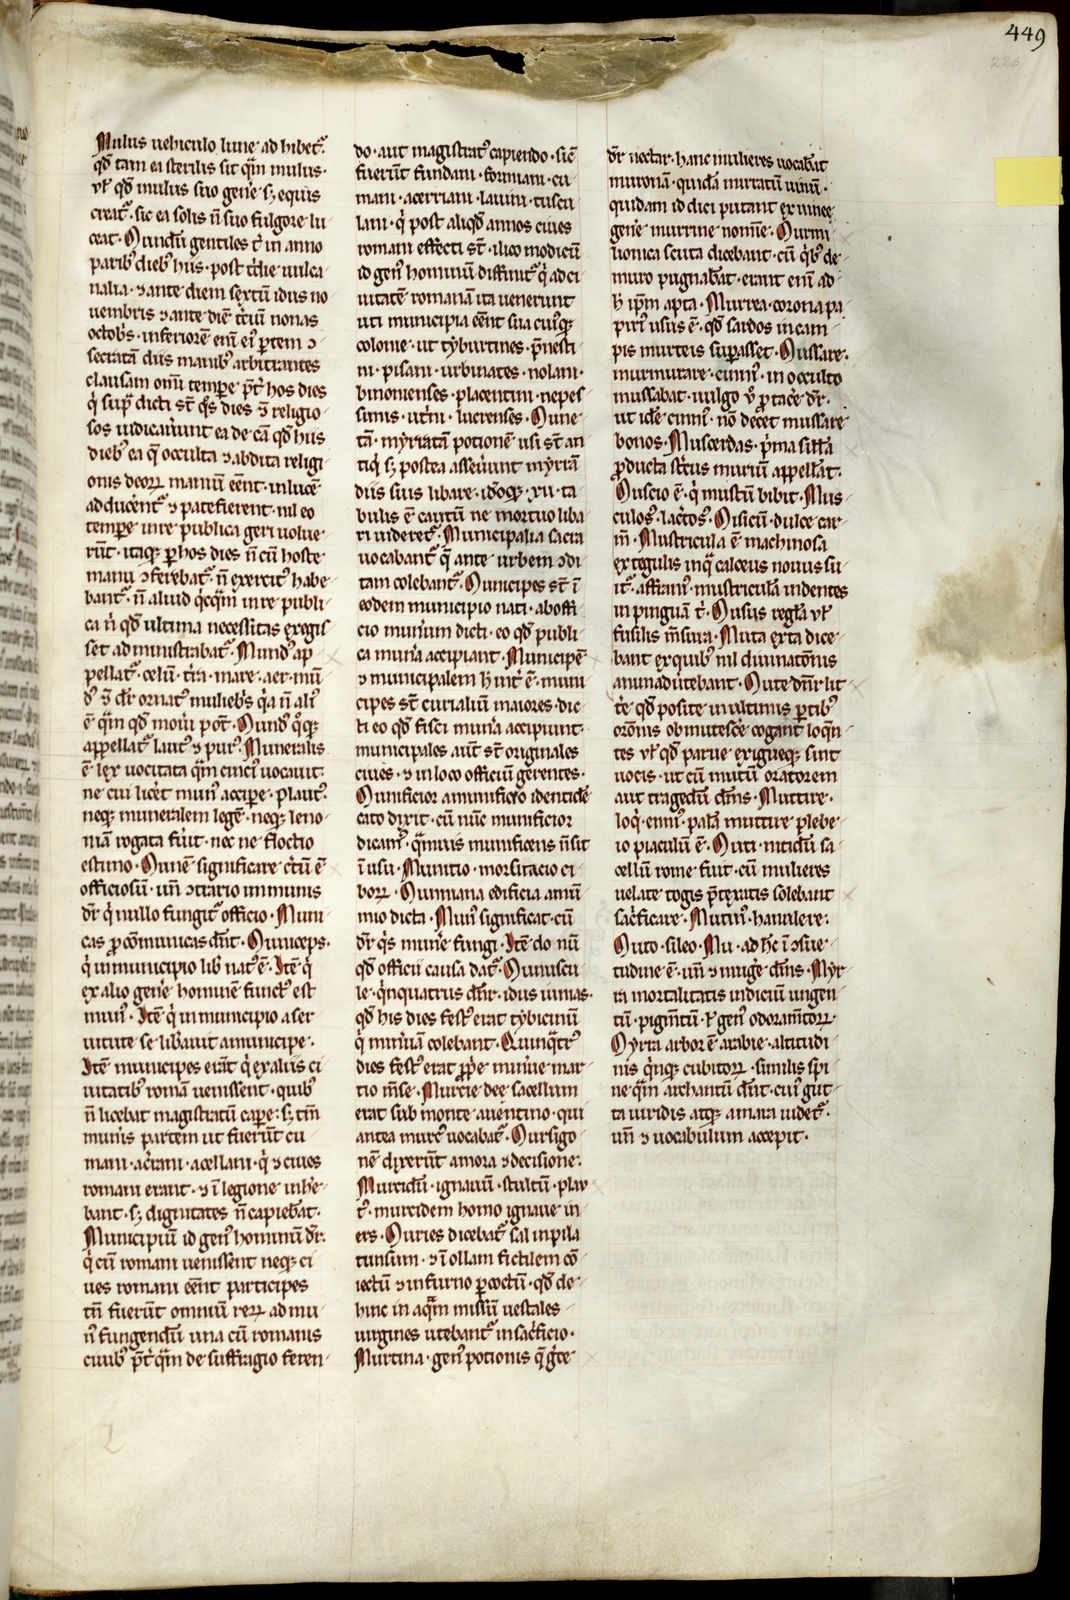 449
226
Mulus uehiculo lune adhibet᷑.
qđ tam ea sterilis sit q̃m mulus·
uł qđ mulus suo geñe s; equis
creat᷑· sic ea solis ñ suo fulgore lu
ceat· Mundũ gentiles t̃ in anno
parib᷒ dieb᷒ hiis· post t̃die uulca
nalia· ⁊ ante diem sextũ idus no
uembris ⁊ ante diẽ t̃ciũ nonas
octob̃s· inferiorẽ eni᷒ ei᷒ ꝑtem ↄ
secratã diis manib᷒ arbitrantes
clausam om̃i temꝑe p̃t᷑ hos dies
q̇ sup᷑ dicti st̃ q̃s dies ⁊ religio
sos iudicau᷑unt ea de cã qđ hiis
dieb᷒ ea q̃ occulta ⁊ abdita religi
onis deoꝝ maniũ eẽnt· in lucẽ
adducẽnt᷑ ⁊ patefierent· nil eo
temꝑe in re publica geri uolue
rũt· itaq; ꝑ hos dies ñ cũ hoste
manu ↄferebat᷑· ñ exercit᷒ habe
bant᷑· ñ aliud q̇cq̃m in re publi
ca ñ qđ ultima necessitas exegis
set administrabat᷑· Mund᷒ ap
pellat᷑ celũ· t̃ra· mare· aer· mũ
d᷒ ⁊ dr̃ ornat᷒ muliebr̃s q̇a ñ ali᷒
ẽ q̃m qđ mou᷑i pot̃· Mund᷒ q̊q;
appellat᷑ laut᷒ ⁊ pur᷒· Muneralis
ẽ lex uocitata q̃m cinci᷒ uocauit·
ne cui licet mun᷒ acciꝑe· plaut᷒·
neq; muneralem legẽ· neq; leno
niã rogata fu᷑it· nec ne flocio
estimo· Munẽ significare c̃tũ ẽ
officiosũ· uñ ↄtrario inmunis
dr̃ q̇ nullo fungit᷑ officio· Muni
cas ꝓ cõmunicas dñt· Municeps·
q̇ in municipio lib᷑ nat᷒ ẽ· Itẽ q̇
ex alio geñe hominẽ funct᷒ est
mun᷒· Itẽ q̇ in municipio a ser
uitute se lib᷑auit a municipe·
Itẽ municipes erãt q̇ ex aliis ci
uitatib᷒ romã uenissent· quib᷒
ñ licebat magistratũ caꝑe· s; tm̃
mun᷑is partem ut fuerũt cu
mani· ac̃rani· acellani· q̇ ⁊ ciues
romani erant· ⁊ ĩ legione m᷑he
bant· s; dignitates ñ capiebãt·
Municipiũ id gen᷒ hominũ dr̃·
q̇ cũ romani uenissent neq; ci
ues romani eẽnt participes
tñ fuerũt omniũ reꝝ ad mu
n᷒ fungendũ una cũ romanis
ciuib᷒ p̃t᷑ q̃m de suffragio feren
do· aut magistrat᷒ capiendo· sic̃
fuerũt fundani· formiani· cu
mani· acerriani· lauini· tuscu
lani· q̇ post aliqđ annos ciues
romani effecti st̃· ilico modicũ
id gen᷒ hominũ diffinit᷑ q̇ ad ci
uitatẽ romanã ita uenerunt
uti municipia eẽnt sua cui᷒q;
colonie· ut tyburtines· p̃nesti
ni· pisani· urbinates· nolani·
binonienses· placentini· nepes
sinis· ut̃ni· lucrenses· Mune
tã· myrratã potionẽ usi st̃ an
tiq̇ s; postea asseu᷑unt myrrã
diis suis libare· idoq; xii· ta
bulis ẽ cautũ ne mortuo liba
ri uideret᷑· Municipalia sacra
uocabant᷑ q̃ ante urbem ↄdi
tam colebant᷑· Municipes st̃ ĩ
eodem municipio nati· ab offi
cio muniũm dicti· eo qđ publi
ca mun᷑a accipiant· Municipẽ
⁊ municipalem h̃ int᷑ ẽ· muni
cipes st̃ curialiũ maiores· dic
ti eo qđ fisci mun᷑a accipiunt·
municipales aut̃ st̃ originales
ciues· ⁊ in loco officiũ gerentes·
Munificior a munifico identidẽ
cato dixit· cũ nũc munificior
dicam᷒· q̃muis munificens ñ sit
ĩ usu· Munitio· morsitacio ci
boꝝ· Munniana edificia amũ
mio dicta· Mun᷒ significat· cũ
dr̃ q̃s mun᷑e fungi· Itẽ donũ
qđ officii causa dat᷑· Munuscu
le· q̇nquatrus dñr· idus iunias·
qđ his dies fest᷒ erat tybicinũ
q̇ min᷑uam colebant· Quinq̃tr᷒
dies fest᷒ erat ꝓp᷑e min᷑ue mar
tio m̃se· Murcie dee sacellum
erat sub monte auentino· qui
antea murc᷒ uocabat᷑· Mursigo
nẽ dixerũt a mora ⁊ decisione·
Murcidũ· ignauũ· stultũ· plau
t᷒· murcidem homo ignaue in
ers· Muries dicebat᷑ sal in pila
tunsum· ⁊ ĩ ollam fictilem cõ
iectũ ⁊ in furno ꝑcoctũ· qđ de
hinc in aq̃m missũ uestales
uirgines utebant᷑ in sac᷑ficio·
Murtina· gen᷒ potionis q̃ g᷑te
dr̃ nectar· hanc mulieres uocabãt
murionã· quidã murratũ uinũ·
quidam id dici putant ex uuee
geñe murrine nomĩe· Murmi
lionica scuta dicebant· cũ q̇b᷒ de
muro pugnabãt· erant eni᷒ ad
h̃ ip̃m apta· Murrea· corona pa
piri᷒ usus ẽ· qđ sardos in cam
pis murteis suꝑasset· Mussare·
murmurare· enni᷒· in occulto
mussabat· uulgo ũ ꝓ tac̃e dr̃·
ut idẽ enni᷒· nõ decet mussare
bonos· Muscerdas· p̃ma sill̃a
ꝓducta st̃cus muriũ appellãt·
Muscio ẽ· q̇ mustũ bibit· Mus
culos᷒· lac̃tos᷒· Misicũ· dulce car
m̃· Mustricula ẽ machinosa
ex tegulis in q̃ calceus nouus su
it᷑· affrani᷒· mustriculã in dentes
in pinguã t̃· Musus regl̃a uł
fusilis m̃sura· Muta exta dice
bant ex quib᷒ nil diuinatõnis
animadũtebant· Mute dñr lit
t̃e qđ posite in ultimis ꝑtib᷒
oroñis obmutesc̃e cogant loq̃n
tes uł qđ parue exigueq; sint
uocis· ut cũ mutũ oratorem
aut tragedũ dm̃s· Muttire·
loq̇· enni᷒· palã muttire plebe
io piaculũ ẽ· Muti· nitidũ sa
cellũ rome fuit· cũ mulieres
uelate togis p̃texatis solebant
sac᷑ficare· Mutin᷒· haurilere·
Muto· sileo· Mu· ad hc̃ ĩ ↄsue
tudine ẽ· uñ ⁊ muig᷑e dm̃s· Myr
ra mortalitatis indiciũ ungen
tũ· pigm̃tũ· ł gen᷒ odoram̃toꝝ
Myrra arbor ẽ arabie· altitudi
nis q̇nq; cubitoꝝ· similis spi
ne q̃m archantũ dñt· cui᷒ gut
ta uiridis atq; amara uidet᷑·
uñ ⁊ uocabulum accepit·